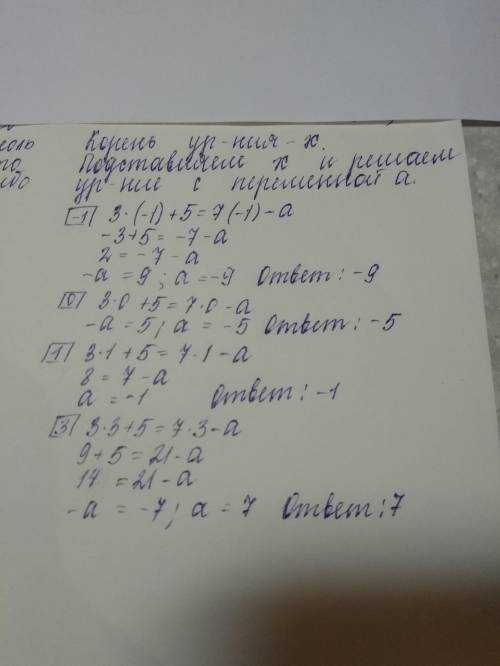 Корень ур-ния - х.
Подставляем х и решаем
ур-ние с переменной а.
-1 3·(-1)+5=7(-1)-а
-3+5=-7-а
2=-7-а
-а=9; а=-9 Ответ: -9
0 3·0+5=7·0-а
-а=5; а=-5 Ответ: -5
1 3·1+5=7·1-а
8=7-а
а=-1 Ответ: -1
3 3·3+5=7·3-а
9+5=21-а
14=21-а
-а=-7; а=7 Ответ: 7